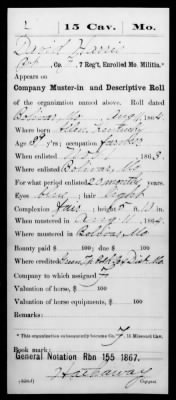 L | 15 Cav. | Mo.
David Harris
, Co. F, 7 Reg't, Enrolled Mo. Militia.*
Appears on
Company Muster-in and Descriptive Roll
of the organization named above. Roll dated
Bolivar, Mo., Aug 11, 1864.
Where born Allen, Kentucky
Age yrs; occupation Farmer
When enlisted , 1863.
Where enlisted Bolivar, Mo.
For what period enlisted 20 months years.
Eyes blue; hair light
Complexion fair; height ft. in.
When mustered in Aug 11, 1864.
Where mustered in Bolivar, Mo
Bounty paid $ 100; due $ 100
Where credited
Company to which assigned F
Valuation of horse, $ 100
Valuation of horse equipments, $ 100
Remarks:
* This organization subsequently became Co. F, 15 Missouri Cav.
Book mark:
General Notation Rbn 155 1867.
Hathaway
Copyist.